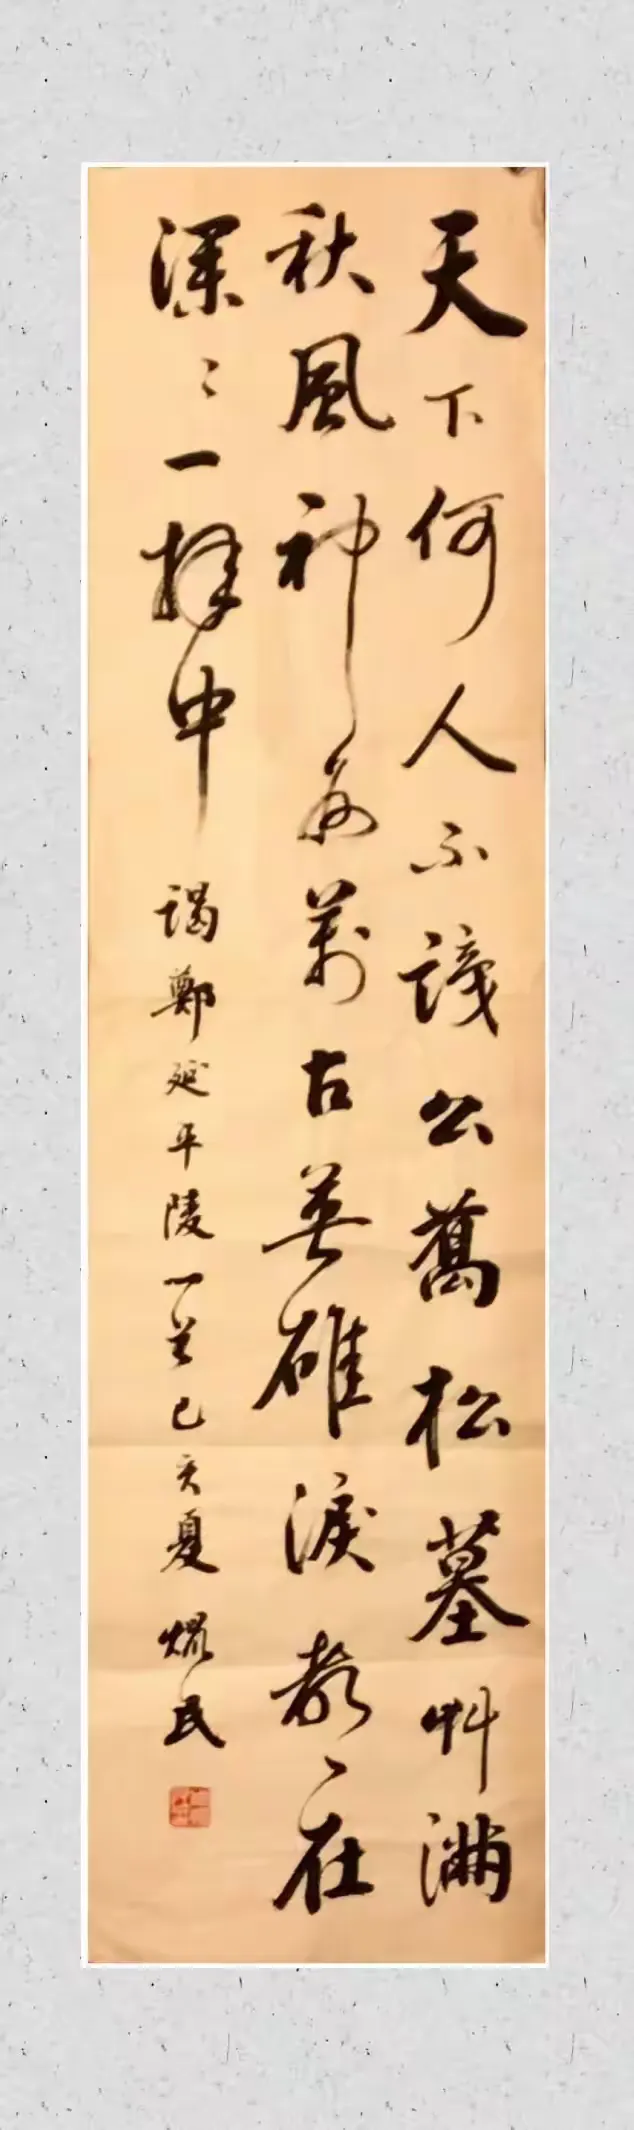 天下何人不識公松墓艸滿
秋風神州萬古英雄淚都在
深〻一拜中 謁鄭延平陵一首己亥夏 民